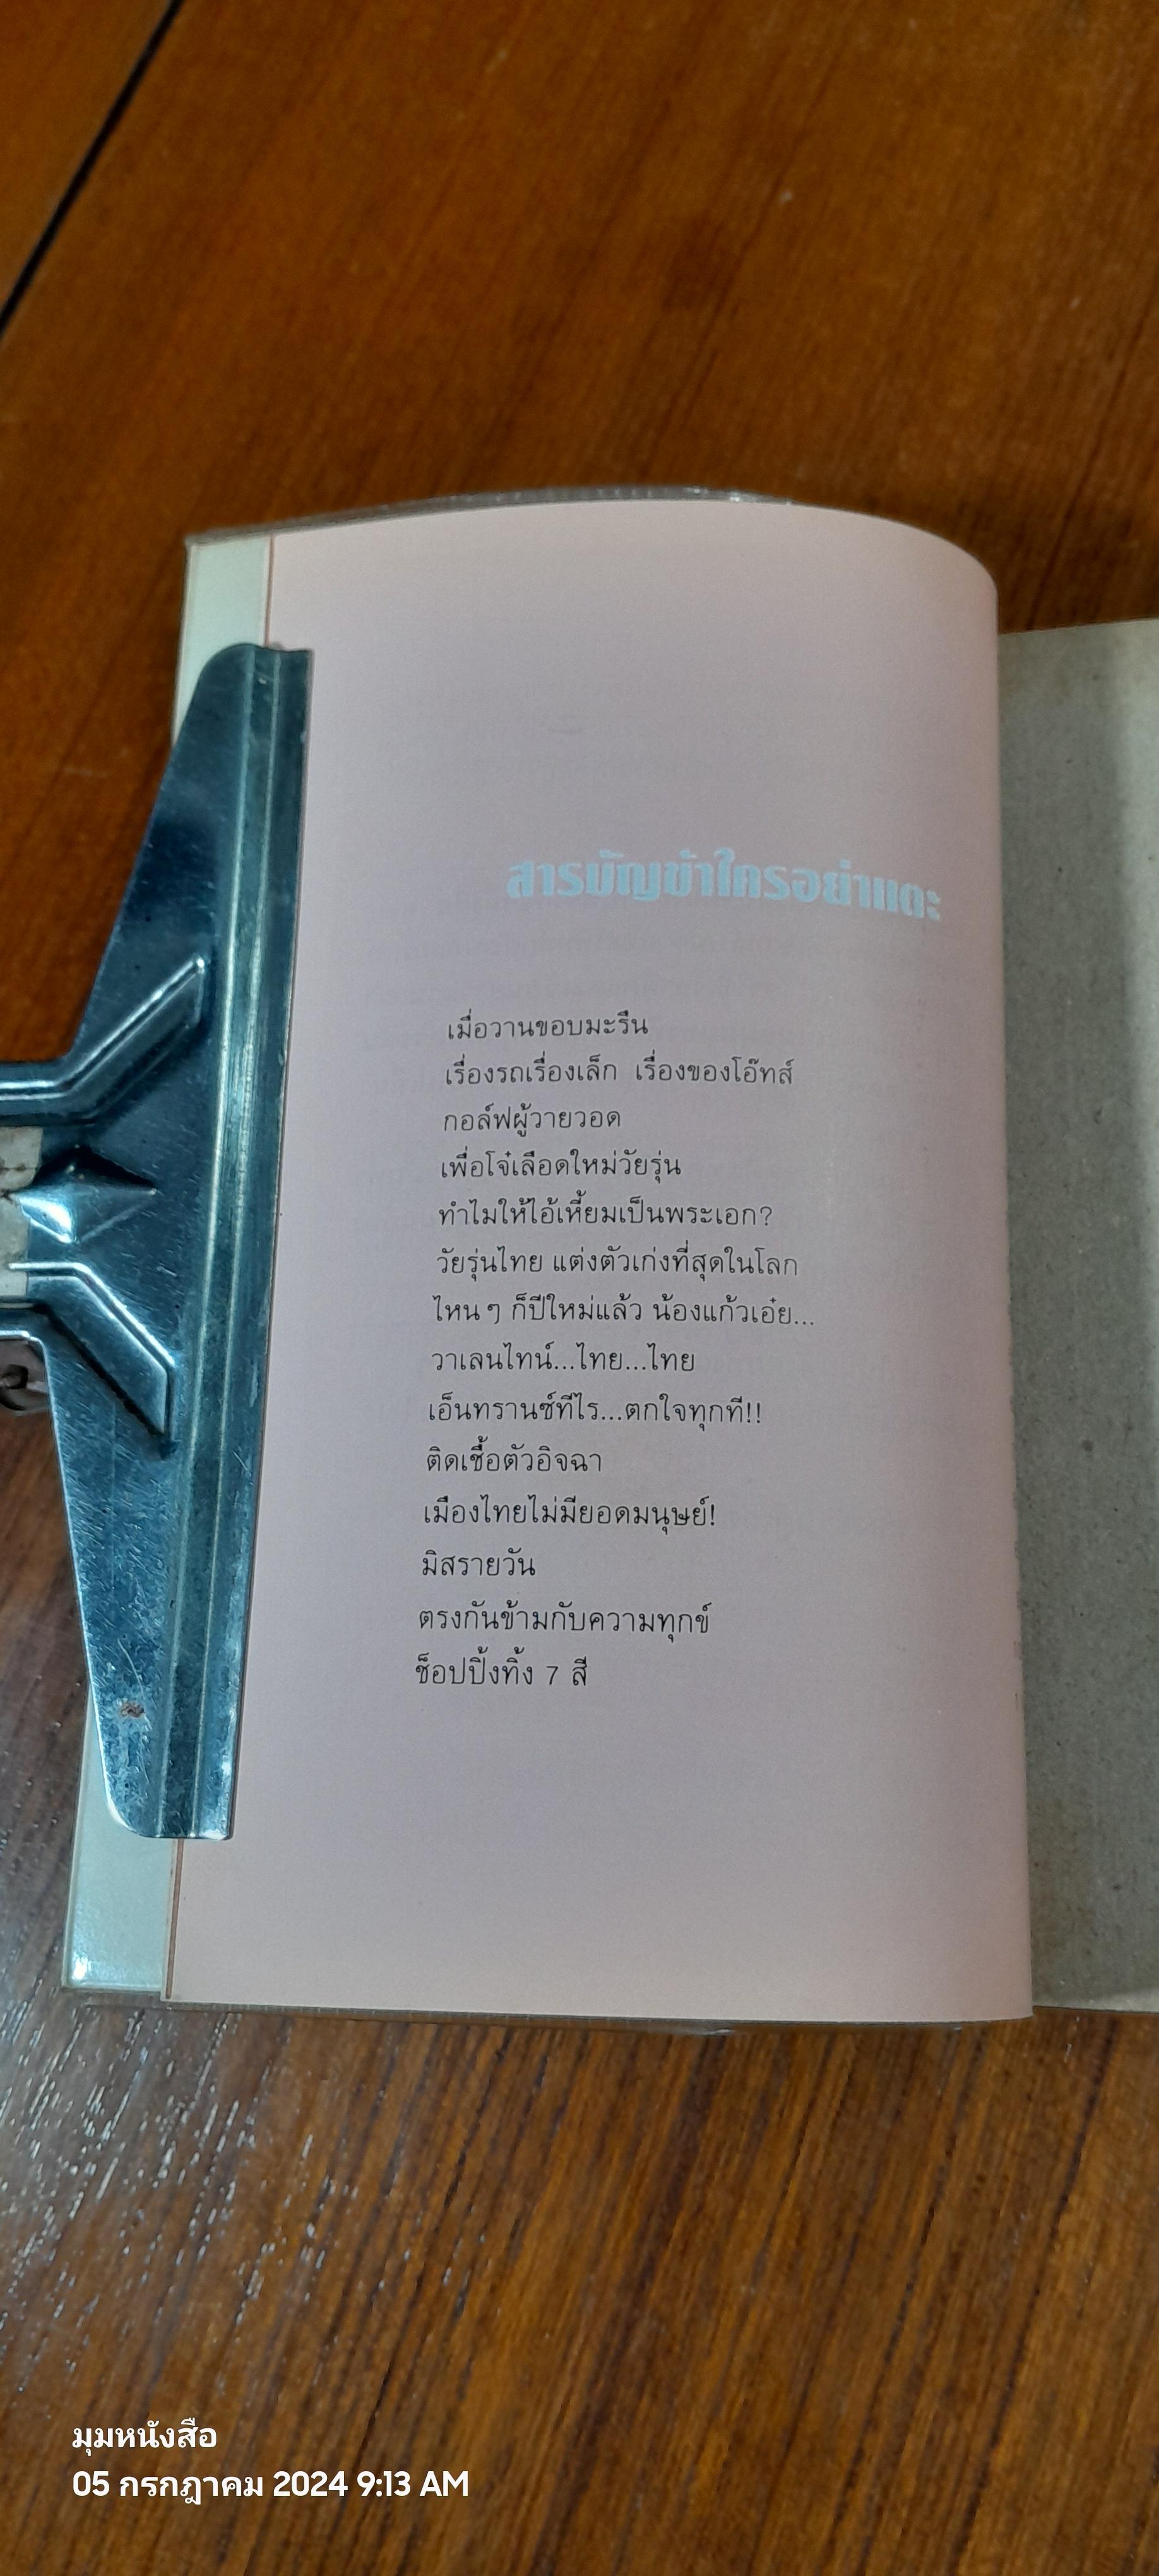 สารบัญข้าใครอย่าแตะ
เมื่อวานขอบมะรืน
เรื่องรถเรื่องเล็ก เรื่องของโอ๊ทส์
กอล์ฟผู้วายวอด
เพื่อโจ๋เลือดใหม่วัยรุ่น
ทำไมให้ไอ้เหี้ยมเป็นพระเอก?
วัยรุ่นไทย แต่งตัวเก่งที่สุดในโลก
ไหน ๆ ก็ปีใหม่แล้ว น้องแก้วเอ๋ย...
วาเลนไทน์...ไทย...ไทย
เอ็นทรานซ์ทีไร...ตกใจทุกที!!
ติดเชื้อตัวอิจฉา
เมืองไทยไม่มียอดมนุษย์!
มิสรายวัน
ตรงกันข้ามกับความทุกข์
ช็อปปิ้งทิ้ง 7 สี
มุมหนังสือ
05 กรกฎาคม 2024 9:13 AM